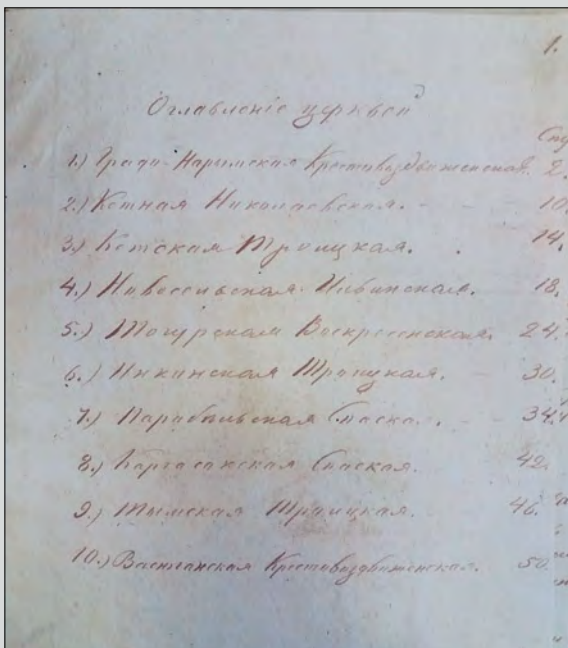 1.
Оглавленіе церквей
Стр
1.) Градо-Нарымская Крестовоздвиженская. 2.
2.) Кетная Николаевская. 10.
3.) Кетская Троицкая. 14.
4.) Новосельская 18.
5.) Тогурская Воскресенская. 24.
6.) Инкинская Троицкая. 30.
7.) Парабельская Спаская. 34.
8.) Каргасакская Спаская. 42.
9.) Тымская Троицкая. 46.
10.) Васюганская Крестовоздвиженская. 50.